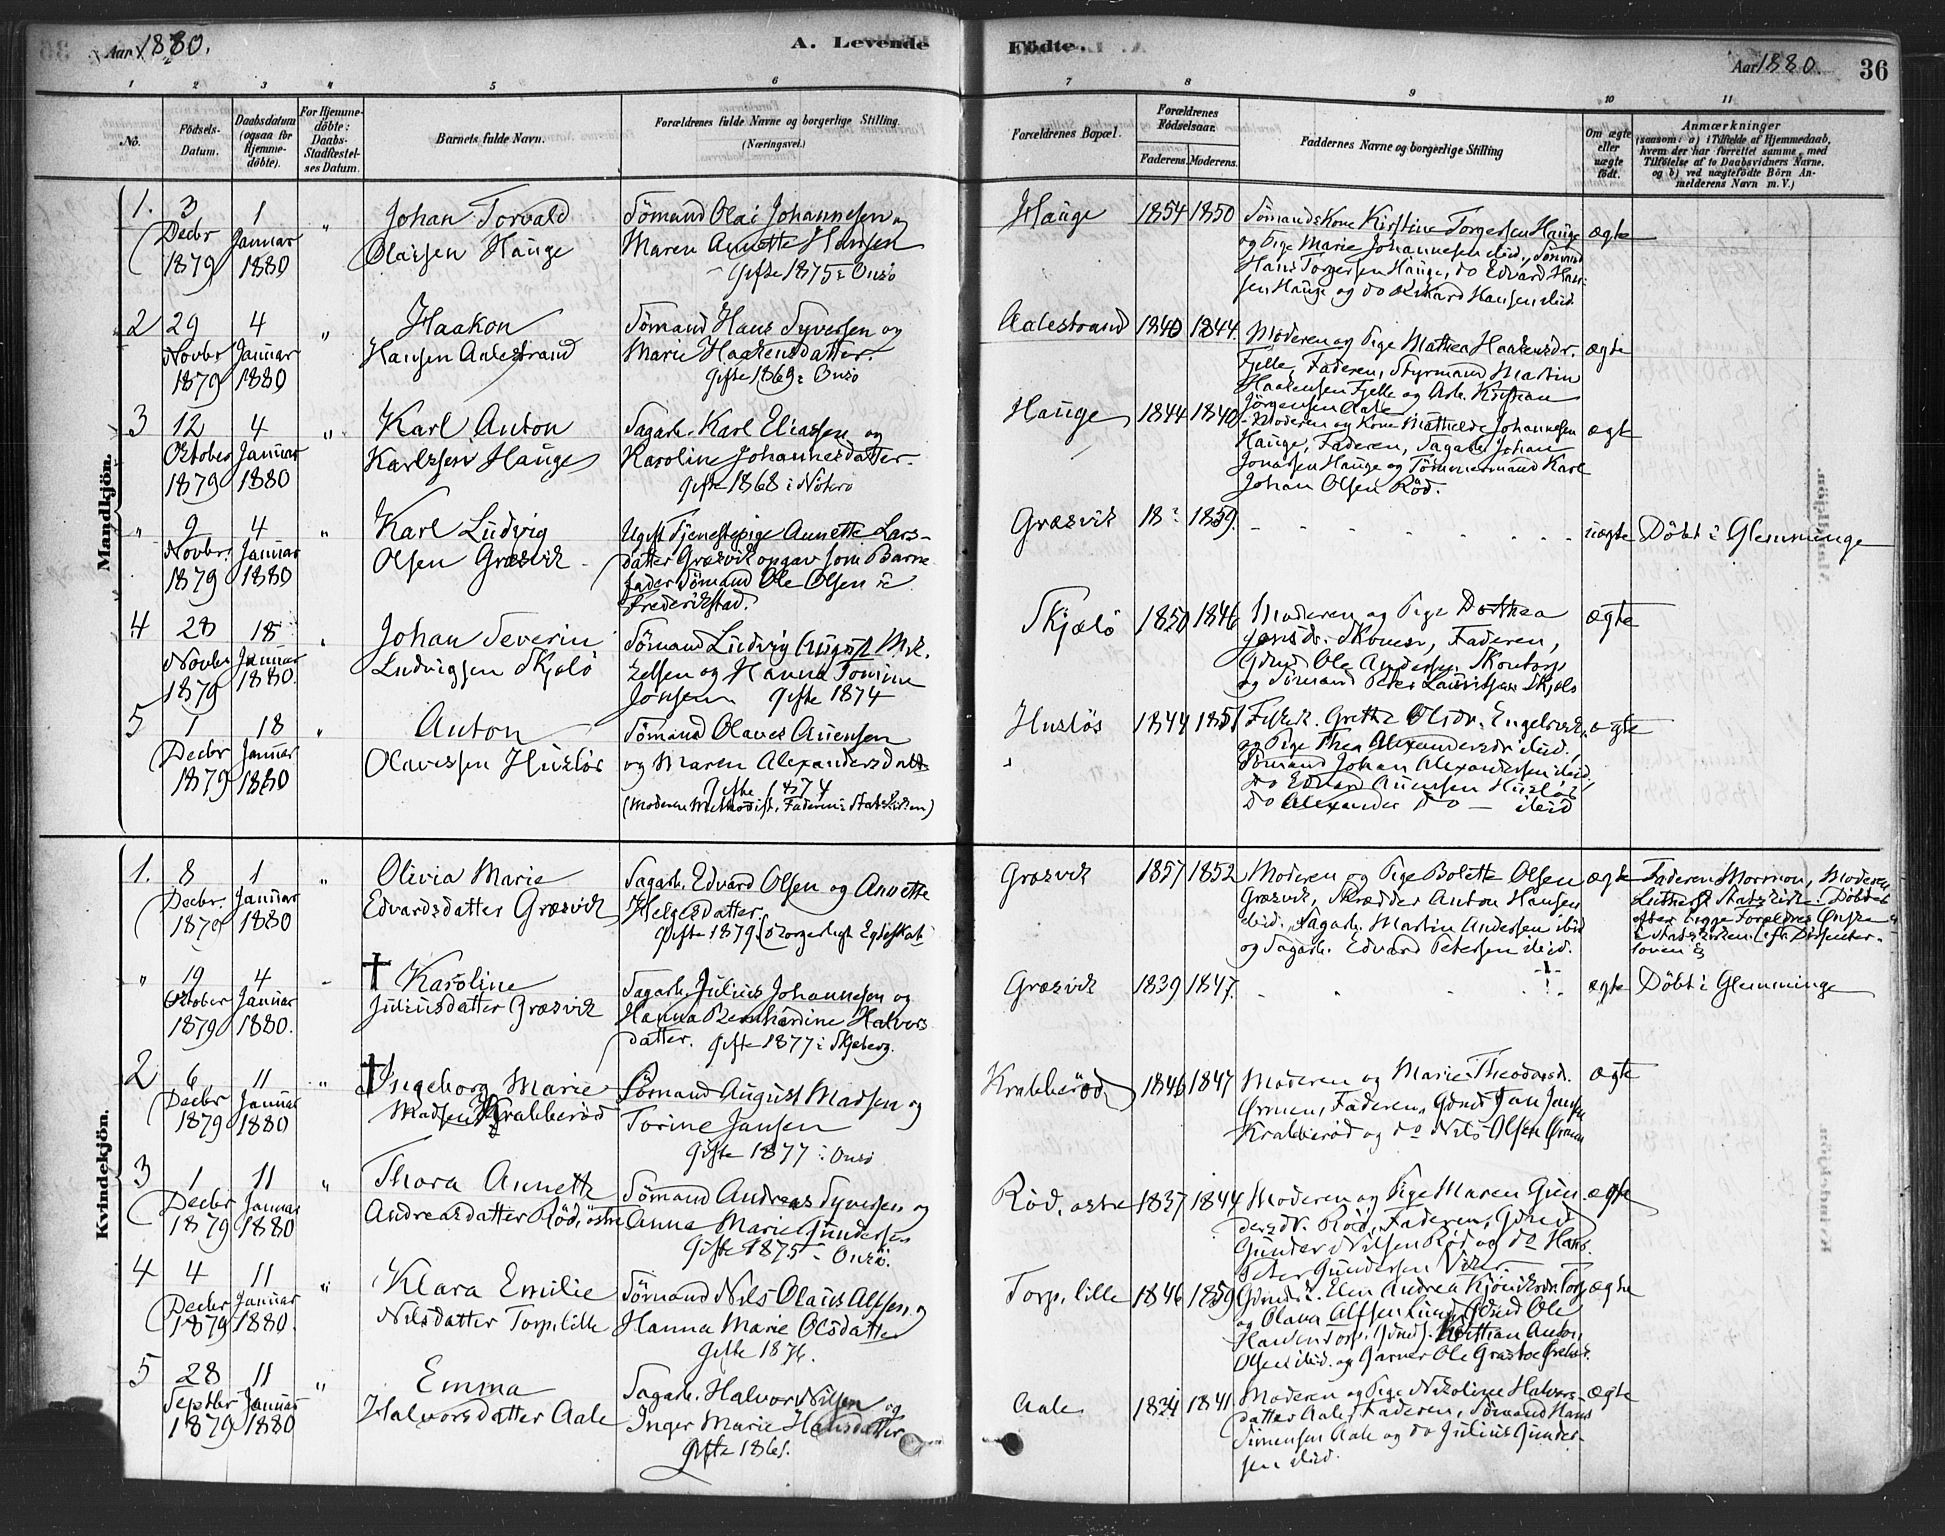 Aar 1880. A. Levende Födte. Aar 1880. 36
1 2 3 4 5 6 7 8 9 10 11
No.
Födsels-
Datum.
Daabsdatum
(ogsaa for
Hjemme-
döbte).
For Hjemme-
döbte:
Daabs-
Stadfæstel-
ses Datum.
Barnets fulde Navn.
Forældrenes fulde Navne og borgerlige Stilling.
(Næringsvei.)
Forældrenes Bopæl.
Forældrenes
Födselsaar.
Faderens. Moderens.
Faddernes Navne og borgerlige Stilling
Om ægte
eller
uægte
födt.
Anmærkninger
(saasom: a) i Tilfælde af Hjemmedaab,
hvem der har forrettet samme, med
Tilföielse af to Daabsvidners Navne,
og b) ved uægtefödte Börn An-
melderens Navn m. V.)
Mandkjön.
1.
3
Decbr
1879
1
Januar
1880
"
Johan Torvald
Olaisen Hauge
Sömand Olai Johannesen og
Maren Annette Hansen
Gifte 1875 i Onsö
Hauge
1854 1850
Sömandskone Kirstine Torgersen Hauge
og Pige Marie Johannesen ibid., Sömand
Hans Torgersen Hauge, do Edvard Han-
sen Hauge og do Rikard Hansen ibid.
ægte
2
29
Novbr
1879
4
Januar
1880
"
Haakon
Hansen Aalestrand
Sömand Hans Syversen og
Marie Haakensdatter.
Gifte 1869 i Onsö
Aalestrand
1840 1844.
Moderen og Pige Mathea Haakensdr.
Fjelle, Faderen, Styrmand Martin
Haakensen Fjelle og Arb. Kristian
Jörgensen Aale
ægte
3
12
October
1879
4
Januar
1880
"
Karl Anton
Karlssen Hauge
Sagarb. Karl Eliassen og
Karoline Johannesdatter.
Gifte 1868 i Nöterö
Hauge
1844 1840
Moderen og Kone Mathilde Johannesen
Hauge, Faderen, Sagarb. Johan
Jonassen Hauge og Tömmermand Karl
Johan Olsen Röd.
ægt
"
9
Novbr.
1879
4
Januar
1880
"
Karl Ludvig
Olsen Græsvik
Ugift Tjenestepige Annette Lars-
datter Græsvik opgav som Barne-
fader Sömand Ole Olsen i
Frederikstad.
Græsvik
18? 1859.
uægte
Döbt i Glemminge
4
28
Novbr
1879
18
Januar
1880.
Johan Severin
Ludvigsen Skjelö
Sömand Ludvig August Mik-
kelsen og Hanna Tomine
Jonsen Gifte 1874
Skjælö
1850 1846
Moderen og Pige Dorthea
Jensdr. Faderen,
Gdmd Ole Andersen Skontorp
og Sömand Peter Lauritsen Skjelö
ægte
5
1
Decbr
1879
18
Januar
1880
"
Anton
Olavessen Huslös
Sömand Olaves Auensen
og Maren Alexandersdatt.
Gifte 1874
(Moderen Methodist, Faderen i Statskirken)
Huslös
1844 1851
Grethe Olsdr. Engelsvik
og Pige Thea Alexandersdr ibid,
Sömand Johan Alexandersen ibid,
do Edvard Auensen Huslös,
do Alexander do — ibid
ægte
Kvindekjön.
1.
8
Decbr.
1879
1
Januar
1880
"
Olivia Marie
Edvardsdatter Græsvik
Sagarb. Edvard Olsen og Annette
Helgesdatter.
Gifte 1879 (borgerligt Egteskab)
Græsvik
1857 1852
Moderen og Pige Bolette Olsen
Græsvik, Skrædder Anton Hansen
ibid., Sagarb. Martin Andersen ibid
og Sagarb. Edvard Petersen ibid.
ægte
Faderen Mormon, Moderen
Luthersk Statskirke. Döbt
efter begge Forældres Önske
i Statskirken. Dissenter-
loven
"
19
October
1879
4
Januar
1880.
† Karoline
Juliusdatter Græsvik
Sagarb. Julius Johannesen og
Hanna Bernhardine Halvors
datter. Gifte 1877 i Skjeberg.
Græsvik
1839 1847.
ægte
Döbt i Glemminge
2
6
Decbr
1879
11
Januar
1880
"
† Ingeborg Marie
Madsen Krabberöd
Sömand August Madsen og
Torine Jansen
Gifte 1877 i Onsö
Krabberöd
1846 1847
Moderen og Marie Theodorsd.
Örmen, Faderen, Gdmd Jan Jansen
Krabberöd og do Nils Olsen Örmen
ægte
3
1
Decbr
1879
11
Januar
1880
"
Thora Annette
Andreasdatter Röd, östre
Sömand Andreas Syversen og
Anna Marie Gundersen
Gifte 1875 i Onsö.
Röd, östre
1837 1844
Moderen og Pige Maren Gun
dersdr. Röd, Faderen, Gdmd
Gunder Nilsen Röd og do Hans
Peter Gundersen Viker
ægte
4
4
Decbr
1879
11
Januar
1880.
"
Klara Emilie
Nilsdatter Torp, lille
Sömand Nils Olaus Alfsen og
Hanna Marie Olsdatter
Gifte 1876.
Torp, lille
1846 1859
Elen Andrea Torp
og Olava Alfsen Gdmd Ole
Hansen Torp, Kristian Anton
Olsen ibid. og Garver Ole
ægte
5
28
Septbr
1879
11
Januar
1880
"
Emma
Halvorsdatter Aale
Sagarb. Halvor Nilsen og
Inger Marie Hansdatter
Gifte 1861.
Aale
1834 1841
Moderen og Pige Nikoline Halvors-
datter Aale, Faderen, Sömand Hans
Simensen Aale og do Julius Gunder-
sen ibid.
ægte